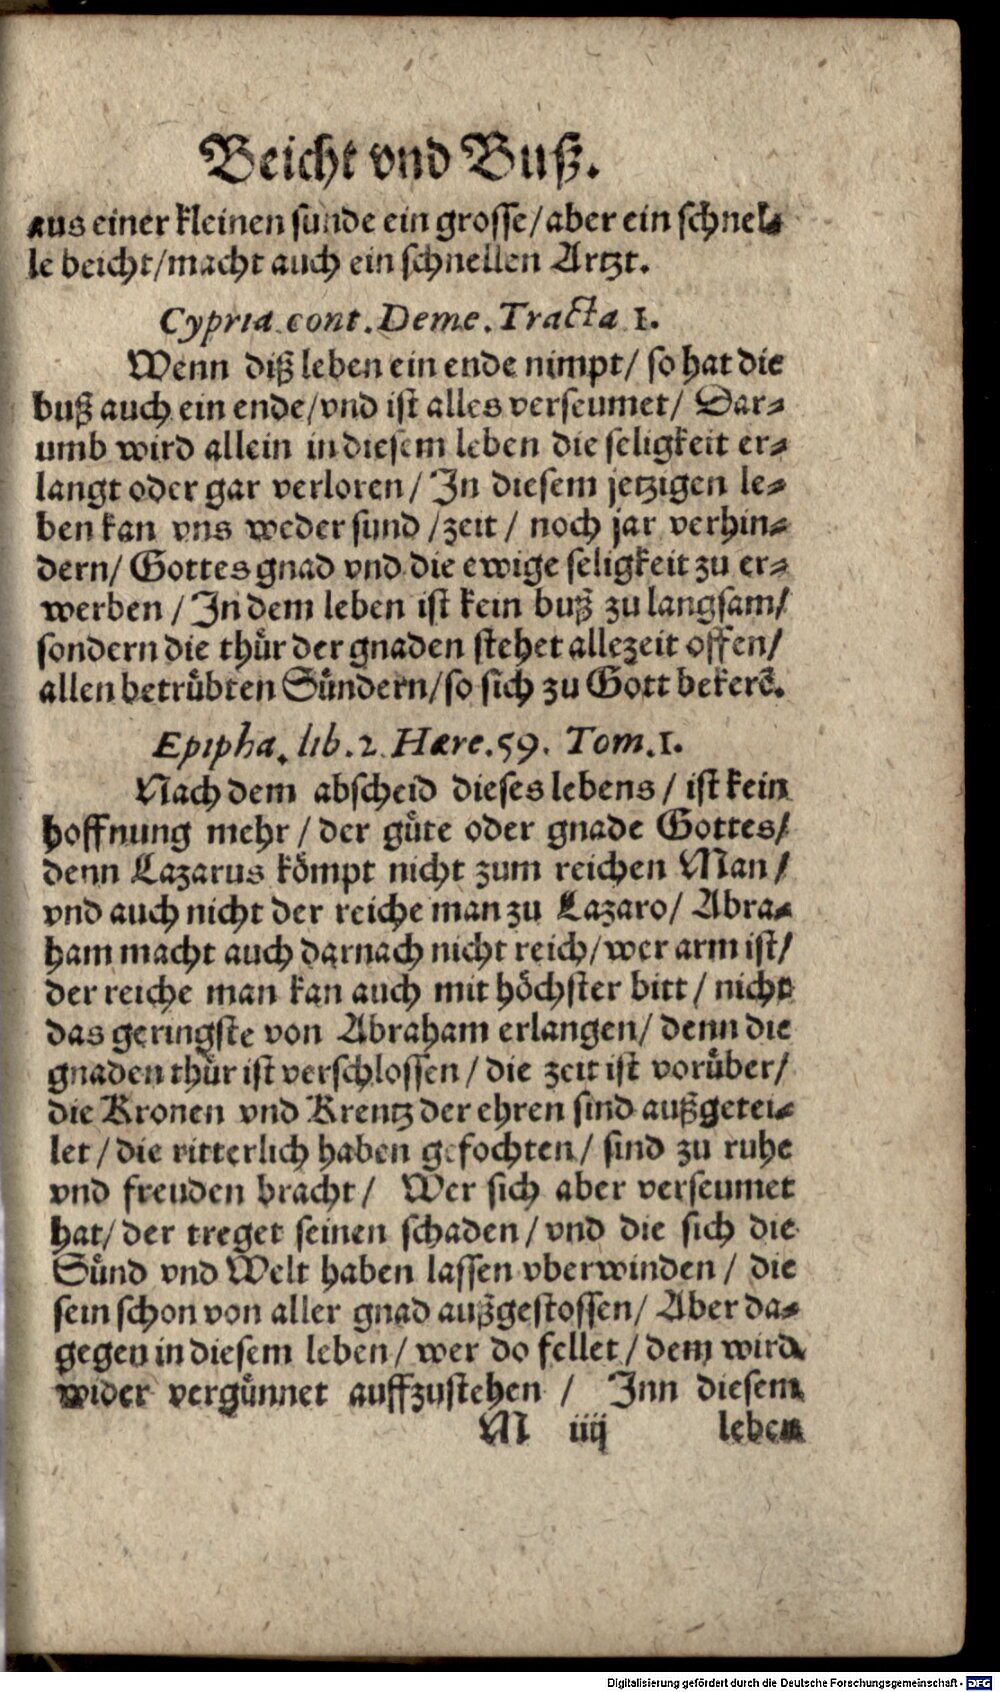 Beicht vnd Buß.
aus einer kleinen sünde ein grosse/aber ein schnel-
le beicht/macht auch ein schnellen Artzt.
Cypria. cont. Deme. Tracta 1.
Wenn diß leben ein ende nimpt/ so hat die
buß auch ein ende/vnd ist alles verseumet/ Dar-
umb wird allein in diesem leben die seligkeit er-
langt oder gar verloren/ In diesem jetzigen le-
ben kan vns weder sund /zeit / noch jar verhin-
dern/ Gottes gnad vnd die ewige seligkeit zu er-
werben / In dem leben ist kein buß zu langsam/
sondern die thuͤr der gnaden stehet allezeit offen/
allen betruͤbten Suͤndern/so sich zu Gott bekerẽ.
Epipha. lib. 2. Hære. 59. Tom. 1.
Nach dem abscheid dieses lebens / ist kein
hoffnung mehr / der guͤte oder gnade Gottes/
denn Lazarus koͤmpt nicht zum reichen Man /
vnd auch nicht der reiche man zu Lazaro/ Abra-
ham macht auch darnach nicht reich/wer arm ist/
der reiche man kan auch mit hoͤchster bitt / nicht
das geringste von Abraham erlangen/ denn die
gnaden thuͤr ist verschlossen / die zeit ist voruͤber/
die Kronen vnd Krentz der ehren sind außgetei-
let / die ritterlich haben gefochten / sind zu ruhe
vnd freuden bracht / Wer sich aber verseumet
hat/ der treget seinen schaden / vnd die sich die
Suͤnd vnd Welt haben lassen vberwinden / die
sein schon von aller gnad außgestossen/ Aber da-
gegen in diesem leben / wer do fellet / dem wird
wider verguͤnnet auffzustehen / Inn diesem
M iiij leben
Digitalisierung gefördert durch die Deutsche Forschungsgemeinschaft - DFG